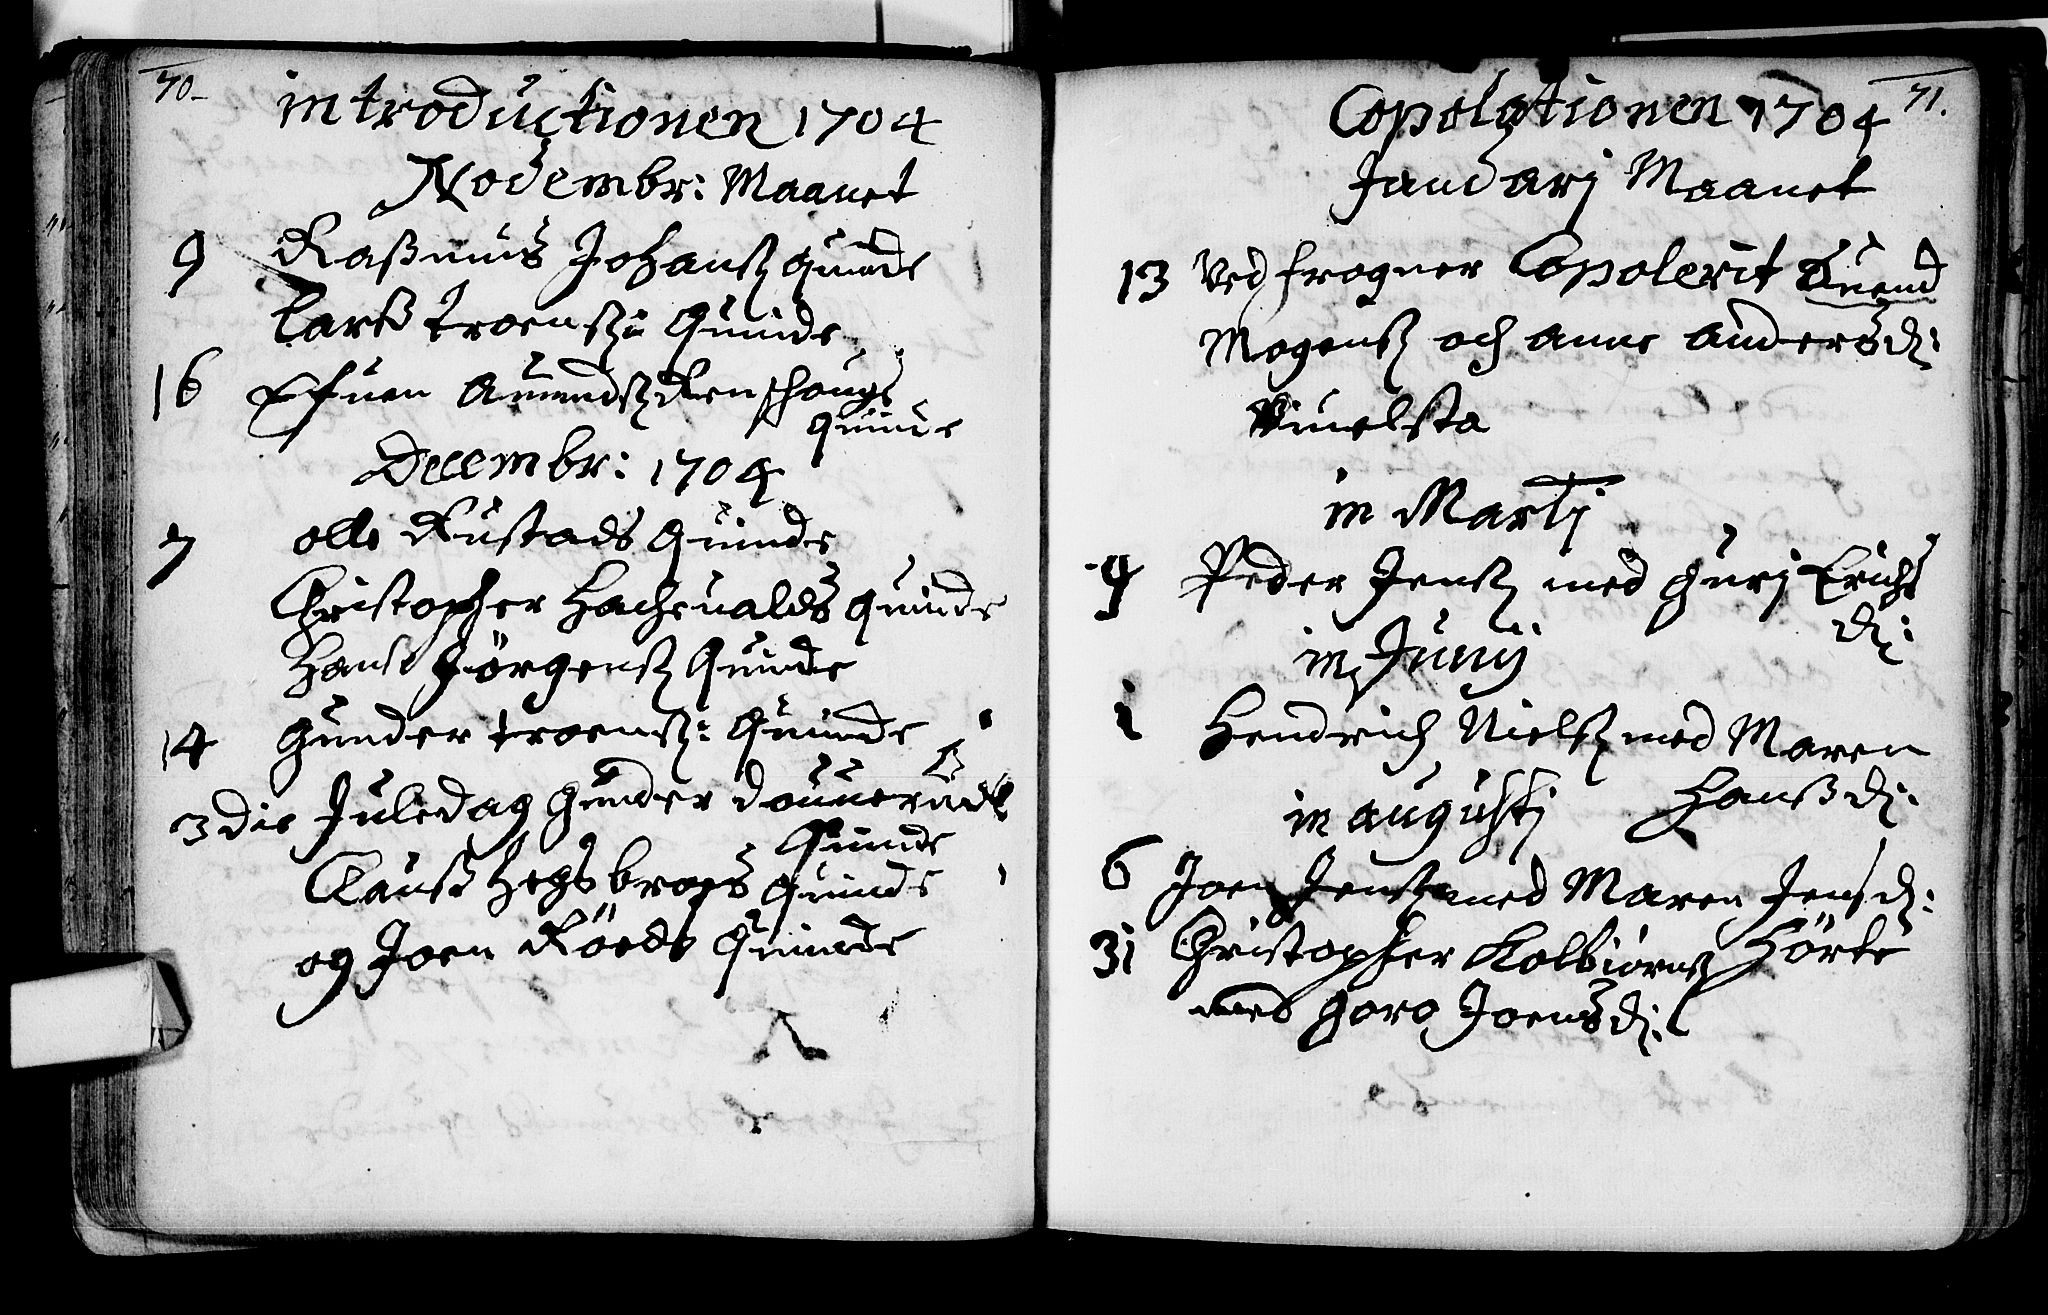 70
introductionen 1704
Novembr: Maanet
9 Raßmus Johanß quinde
Larß troenß: Quinde
16 Efuen Amundß Renschougs
Quinde
Decembr: 1704
7 olle Rustads Quinde
Christopher Hachevalds quinde
Hans Jörgenß Quinde
14 Gunder troenß: Quinde
3die Juledag Gunder
Quinde
Clauß quinde
og Joen Röeds Quinde
71.
Copolationen 1704
Januarj Maanet
13 Ved frogner Copolerit Auend
Mogenß och anne andersd:
Vinelsta
in Martj
9 Peder Jenß med gurj Erichs
d:
in Junij
i Hendrich Nielß med Maren
Hanß d:
in augustj
6 Joen Jenß med Maren Jensd:
3i Christopher Kolbiörnß Hörte
med goro Joensd: